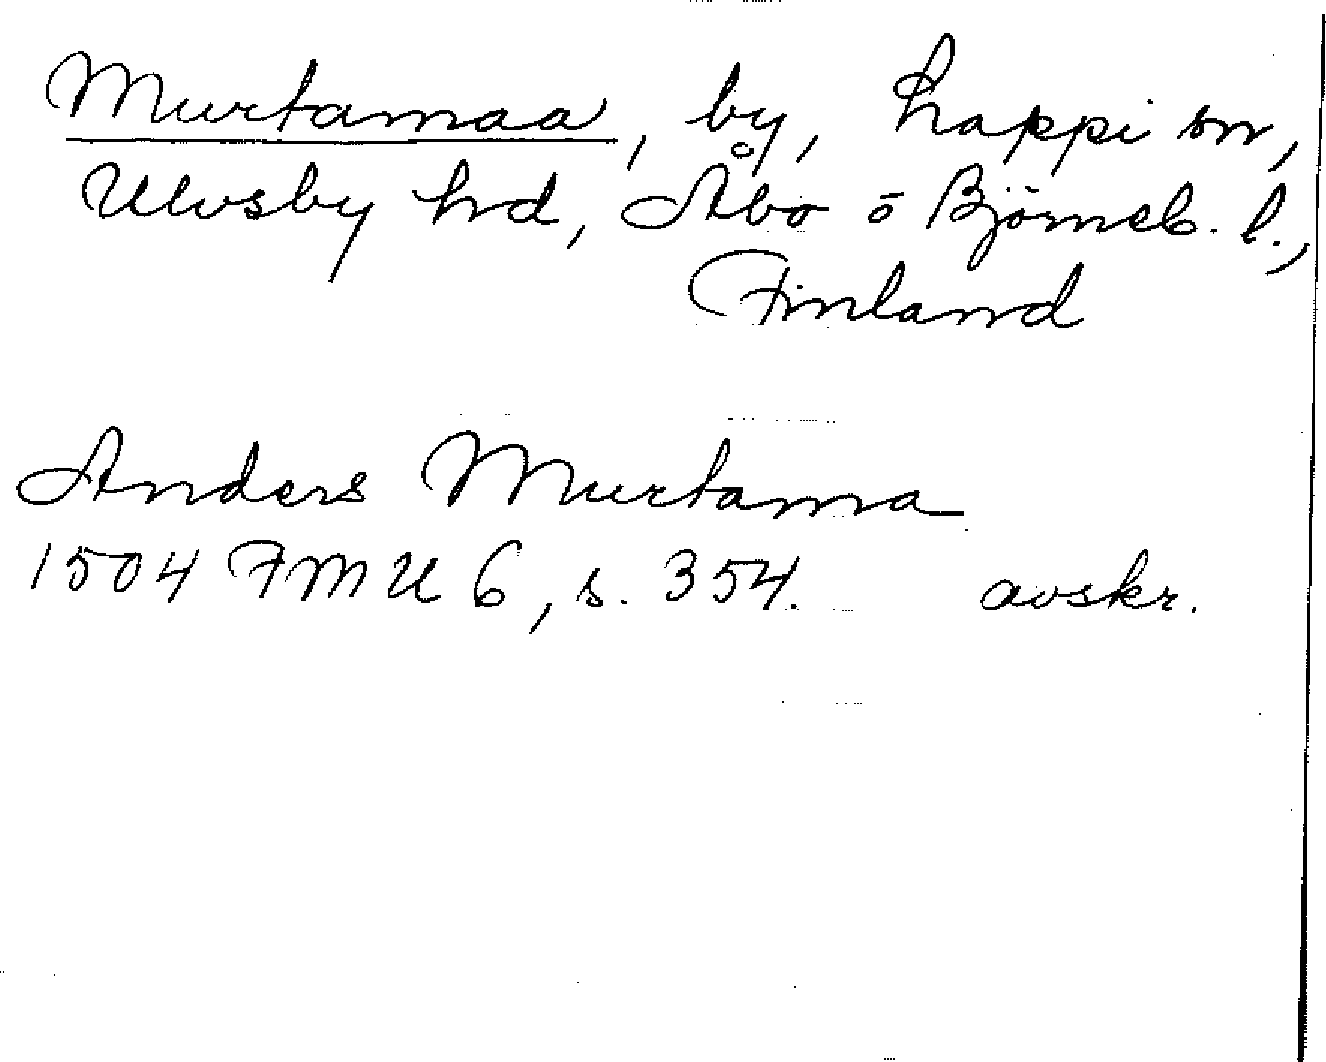 Murtamaa, by, Lappi sn,
Ulvsby hd, Åbo o Björneb. l.,
Finland
Anders Murtama
1504 FMU 6, s. 354. avskr.